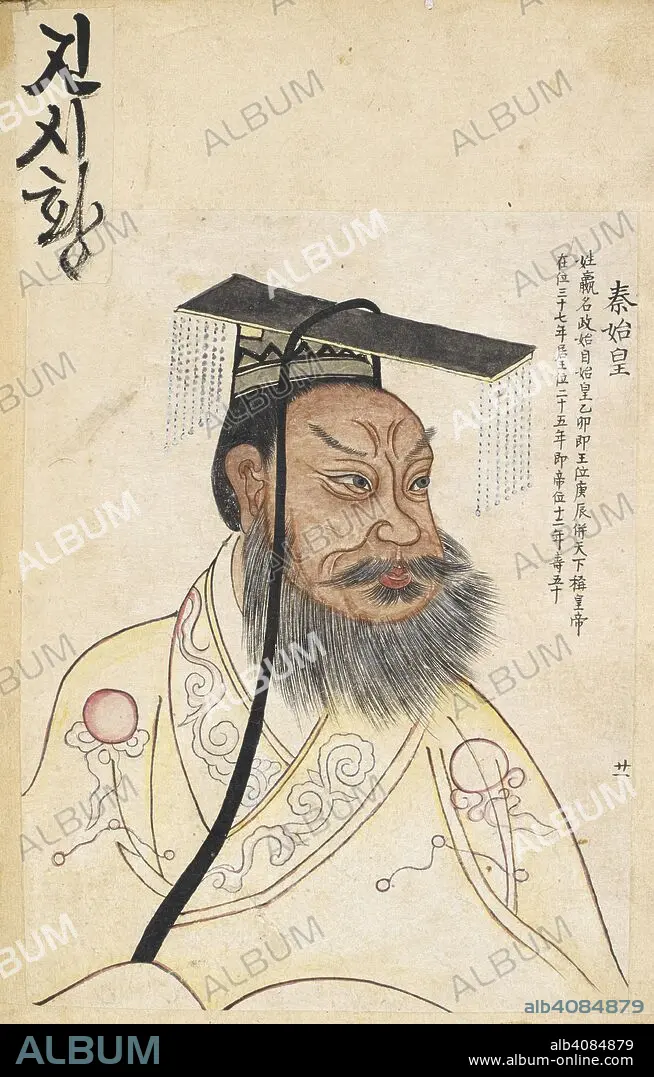 진시황
秦始皇
姓嬴名政始自始皇乙卯即王位庚辰併天下稱皇帝
在位三十七年居王位二十五年即帝位十二年壽五十
廿一
alb4084879
ALBUM
alb4084879
www.album-online.com